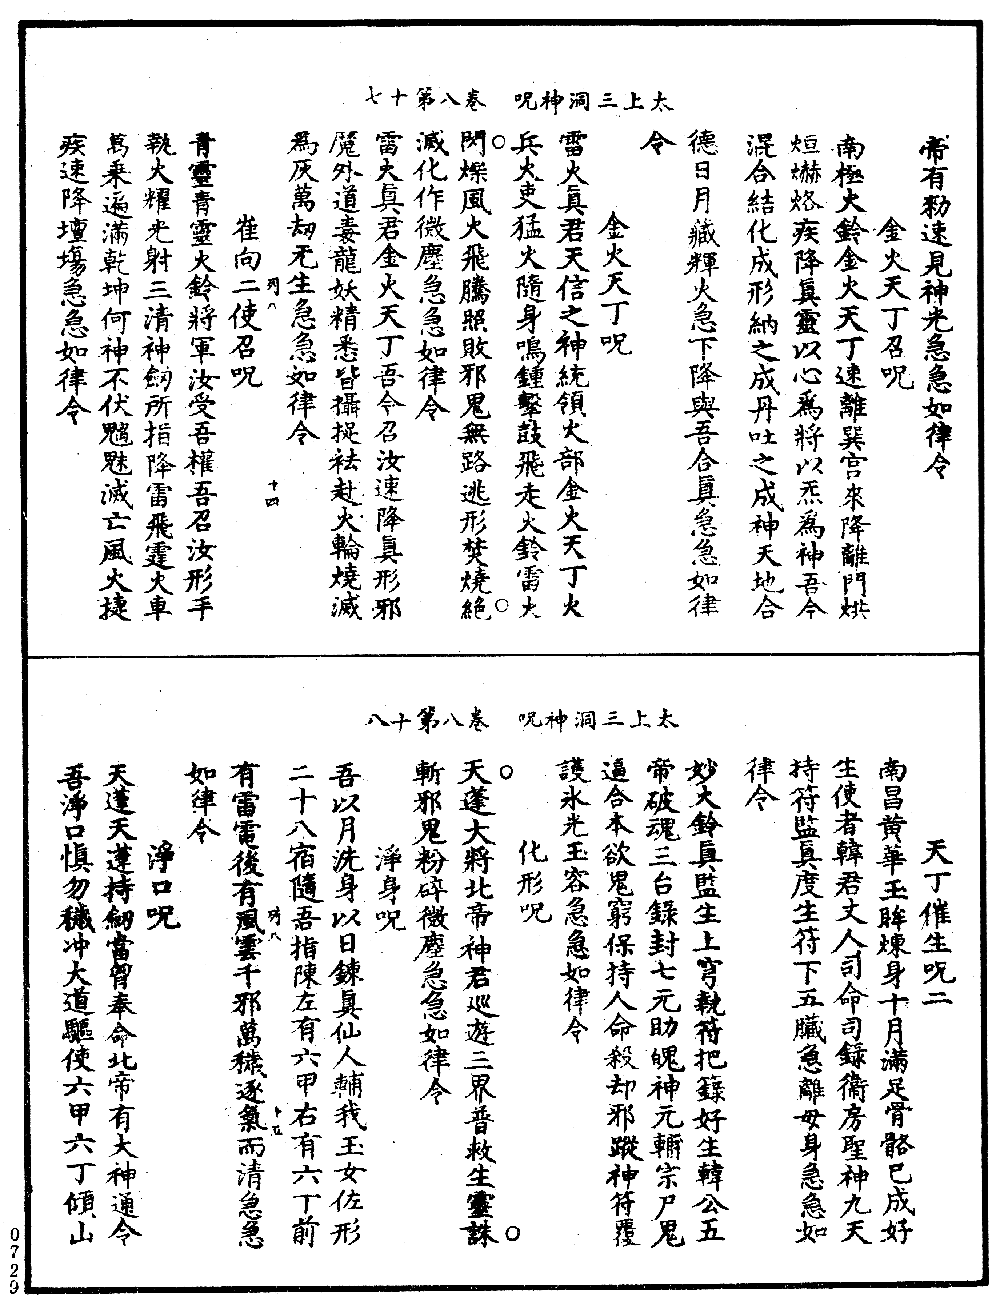 太上三洞神呪　卷八第十七
帝有勑速見神光急急如律令
金火天丁召呪
南極火鈴金火天丁速離巽宫來降離門烘
烜爀烙疾降真靈以心爲將以炁爲神吾今
混合結化成形納之成丹吐之成神天地合
德日月藏輝火急下降與吾合真急急如律
令
金火天丁呪
雷火真君天信之神統領火部金火天丁火
兵火吏猛火隨身鳴鍾擊鼓飛走火鈴雷火
閃爍風火飛騰照敗邪鬼無路逃形焚燒絶
滅化作微塵急急如律令
雷火真君金火天丁吾今召汝速降真形邪
魔外道毒龍妖精悉皆攝捉祛赴火輪燒滅
爲灰萬劫无生急急如律令
列八
十四
崔向二使召呪
青靈青靈火鈴將軍汝受吾權吾召汝形手
執火耀光射三清神劒所指降雷飛霆火車
萬乘遍滿乾坤何神不伏魑魅滅亡風火捷
疾速降壇塲急急如律令
太上三洞神呪　卷八第十八
天丁催生呪二
南昌黄華玉眸煉身十月滿足骨骼已成好
生使者韓君丈人司命司録衞房聖神九天
持符監真度生符下五臟急離母身急急如
律令
妙火鈴真監生上穹執符把籙好生韓公五
帝破魂三台錄封七元助魄神元輔宗尸鬼
逼合本欲鬼窮保持人命殺却邪蹤神符覆
護氷光玉容急急如律令
化形呪
天蓬大將北帝神君巡遊三界普救生靈誅
斬邪鬼粉碎微塵急急如律令
淨身呪
吾以月洗身以日鍊真仙人輔我玉女佐形
二十八宿隨吾指陳左有六甲右有六丁前
有雷電後有風雲千邪萬穢逐氣而清急急
列八
十五
如律令
淨口呪
天蓬天蓬持劒當胷奉命北帝有大神通令
吾淨口慎勿穢冲大道驅使六甲六丁傾山
0729